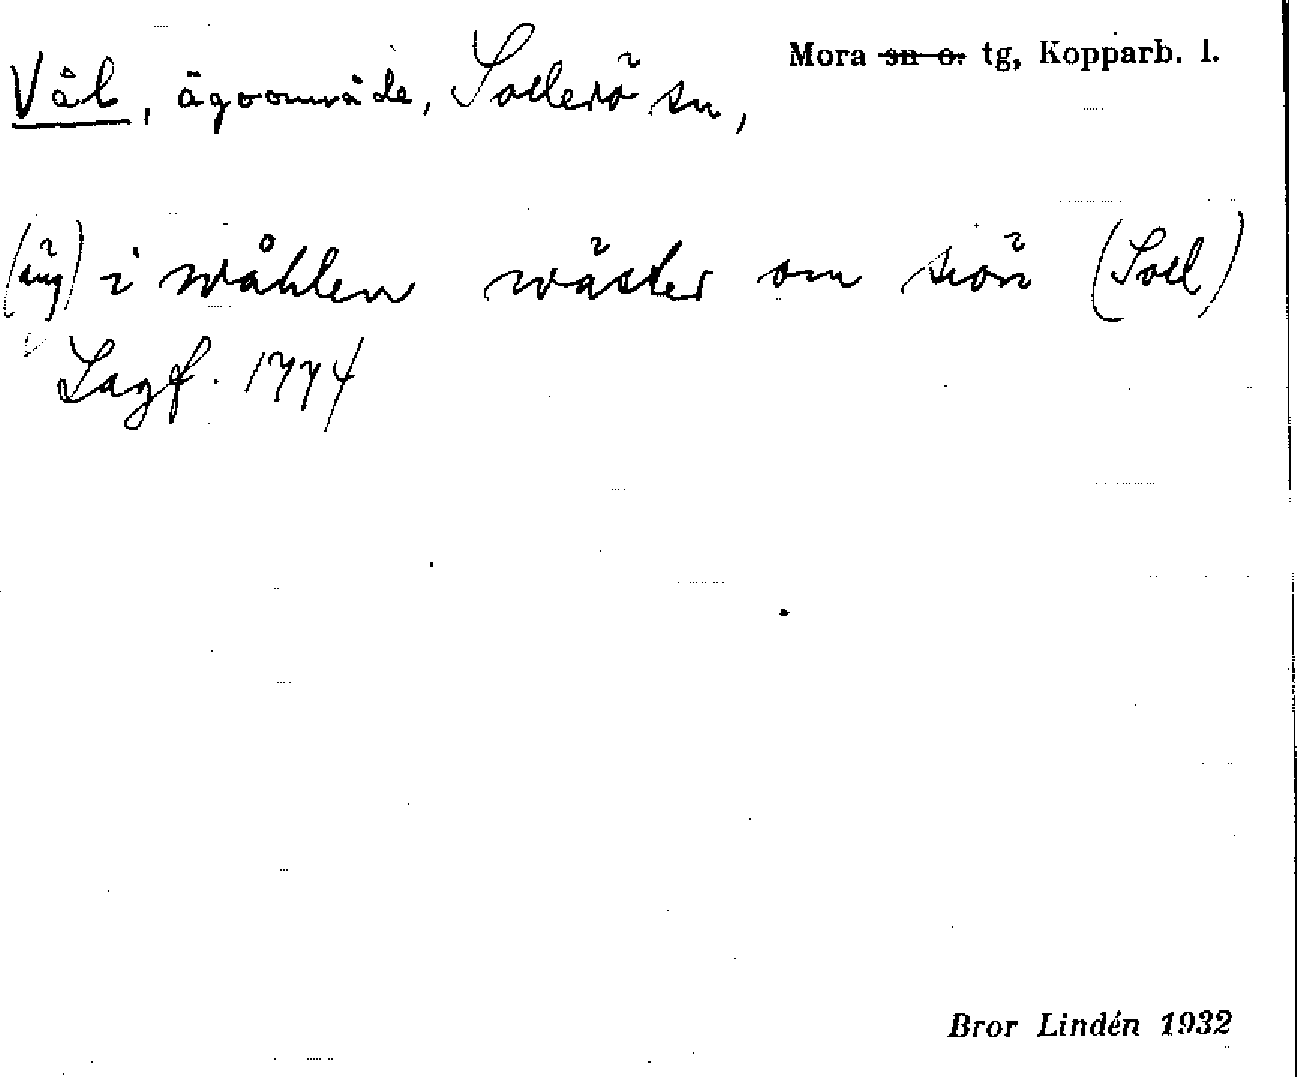 Vål, ägoområde, Sollerö sn, Mora sn o. tg, Kopparb. l.
(äng) i wåhlen wäster om siön (Soll)
Lagf. 1774
Bror Lindén 1932